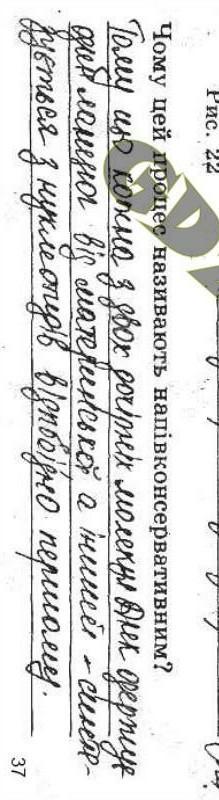 Рис. 22
Чому цей процес називають напівконсервативним?
Тому що кожна з двох дочірніх молекул ДНК одержує
один ланцюг від материнської а інший - синте-
зується з нуклеотидів відповідно першому.
37
GD